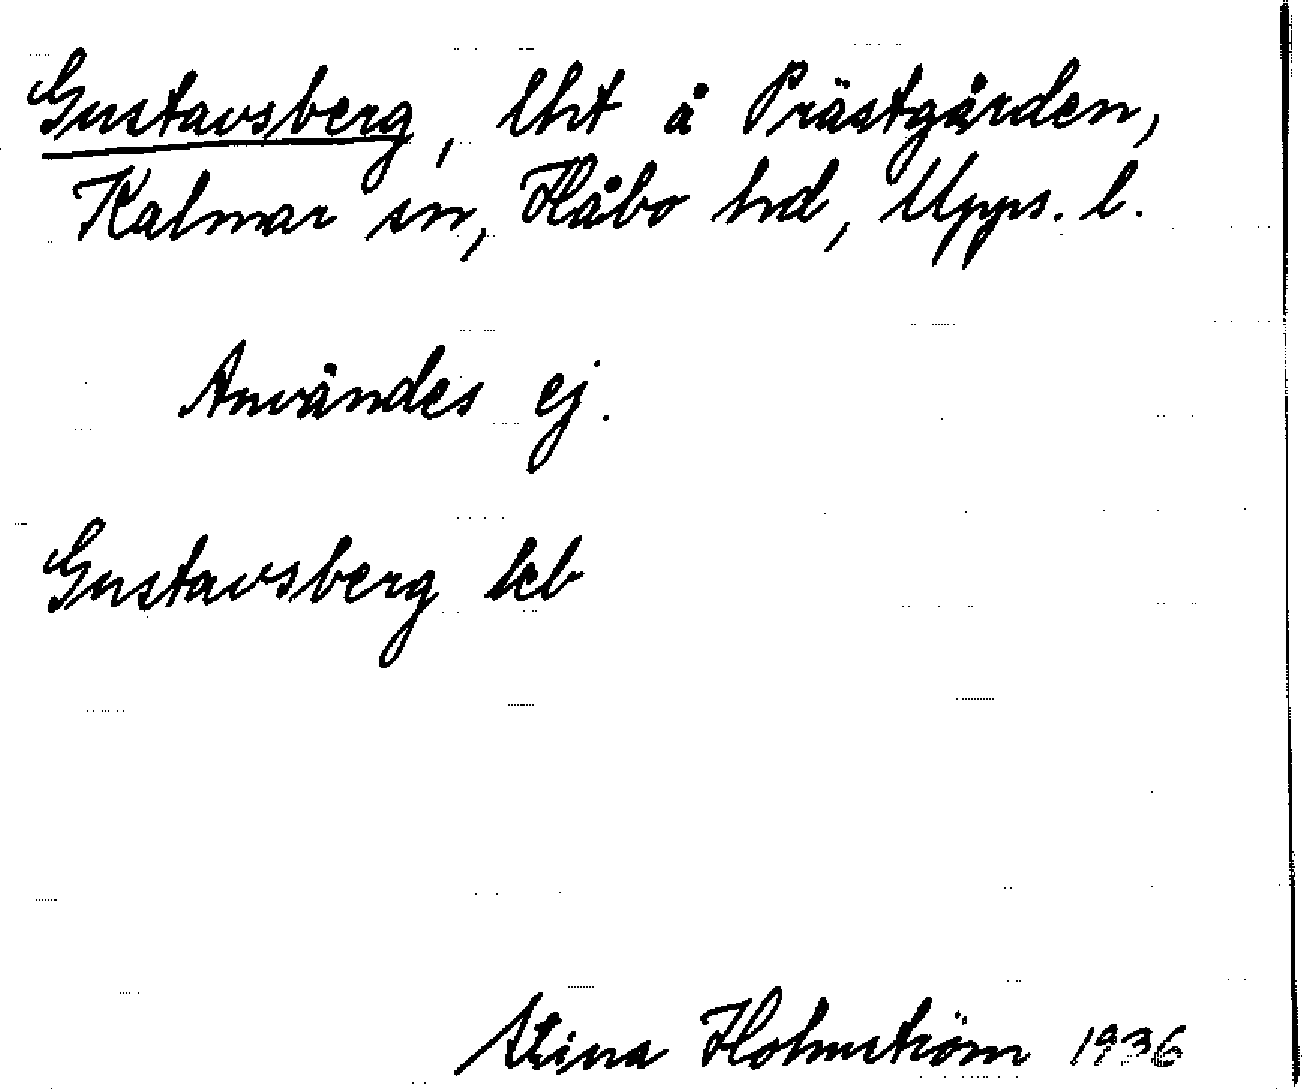 Gustavsberg, lht å Prästgården,
Kalmar sn, Håbo hd, Upps. l.
Användes ej.
Gustavsberg leb
Stina Holmström 1936